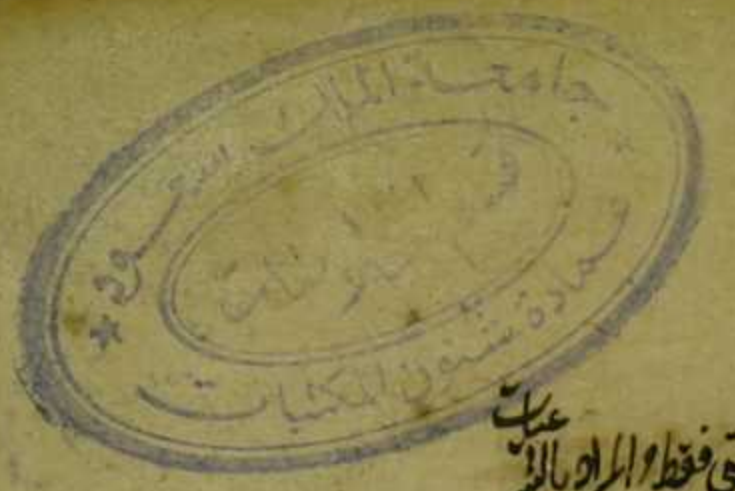 جامعة الملك سعود
قسم المخطوطات
عمادة شئون المكتبات
فقط والمراد